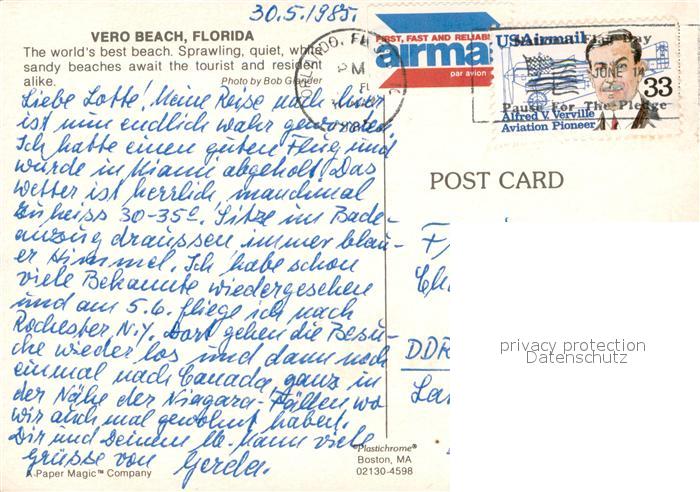 30.5.1985.
VERO BEACH, FLORIDA
The world's best beach. Sprawling, quiet, white
sandy beaches await the tourist and resident
alike.
Photo by Bob Glander
Liebe Lotte! Meine Reise nach hier
ist nun endlich wahr geworden.
Ich hatte einen guten Flug und
wurde in Miami abgeholt! Das
Wetter ist herrlich, manchmal
zu heiss 30-35c. Sitze im Bade-
anzug draussen immer blau-
er Himmel. Ich habe schon
viele Bekannte wiedergesehen
und am 5.6. fliege ich nach
Rochester N.Y. Dort gehen die Besu-
che wieder los und dann noch
einmal nach Canada, ganz in
der Nähe der Niagara-Fällen wo
wir auch mal gewohnt haben.
Dir und Deinem Mann viele
Grüsse von Gerda.
A Paper Magic™ Company
Plastichrome®
Boston, MA
02130-4598
FIRST, FAST AND RELIABL
airma
par avion
ORLANDO, FL
PM
USAirmail
Flag Day
JUNE 14
33
Pause For The Pledge
Alfred V. Verville
Aviation Pioneer
POST CARD
DDR
privacy protection
Datenschutz